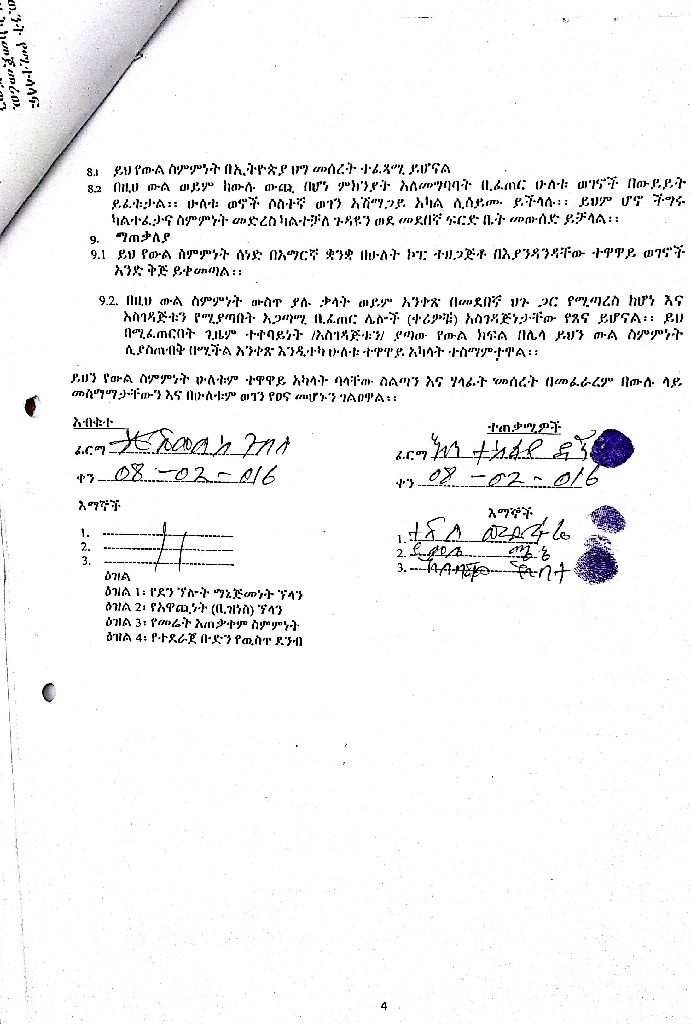 8.1 ይህ የውል ስምምነት በኢትዮጵያ ህግ መሰረት ተፈጻሚ ይሆናል
8.2 በዚህ ውል ወይም ከውሉ ውጪ በሆነ ምክንያት አለመግባባት ቢፈጠር ሁለቱ ወገኖች በውይይት
ይፈቱታል፡፡ ሁለቱ ወኖች ሶስተኛ ወገን አሸማጋይ አካል ሊሰይሙ ይችላሉ፡፡ ይህም ሆኖ ችግሩ
ካልተፈታና ስምምነት መድረስ ካልተቻለ ጉዳዩን ወደ መደበኛ ፍርድ ቤት መውሰድ ይቻላል፡፡
9. ማጠቃለያ
9.1 ይህ የውል ስምምነት ሰነድ በአማርኛ ቋንቋ በሁለት ኮፒ ተዘጋጅቶ በእያንዳንዳቸው ተዋዋይ ወገኖች
አንድ ቅጅ ይቀመጣል፡፡
9.2. በዚህ ውል ስምምነት ውስጥ ያሉ ቃላት ወይም አንቀጽ በመደበኛ ህጉ ጋር የሚጣረስ ከሆነ እና
አስገዳጅቱን የሚያጣበት አጋጣሚ ቢፈጠር ሌሎች (ቀሪዎቹ) አስገዳጅነታቸው የጸና ይሆናል፡፡ ይህ
በሚፈጠርበት ጊዜም ተቀባይነት /አስገዳጅቱን/ ያጣው የውል ክፍል በሌላ ይህን ውል ስምምነት
ሊያስጠብቅ በሚችል አንቀጽ እንዲተካ ሁለቱ ተዋዋይ አካላት ተስማምተዋል፡፡
ይህን የውል ስምምነት ሁለቱም ተዋዋይ አካላት ባላቸው ስልጣን እና ሃላፊት መሰረት በመፈራረም በውሉ ላይ
መስማማታቸውን እና በሁለቱም ወገን የፀና መሆኑን ገልፀዋል፡፡
አብቁተ
ፊርማ
ቀን 08-02-016
እማኞች
1.
2.
3.
ተጠቃሚዎች
ፊርማ
ቀን 08-02-016
እማኞች
1.
2.
3.
ዕዝል
ዕዝል 1፡ የደን ኘሎት ማኔጅመነት ኘላን
ዕዝል 2፡ የአዋጪነት (ቢዝነስ) ኘላን
ዕዝል 3፡ የመሬት አጠቃቀም ስምምነት
ዕዝል 4፡ የተደራጀ ቡድን የዉስጥ ደንብ
4